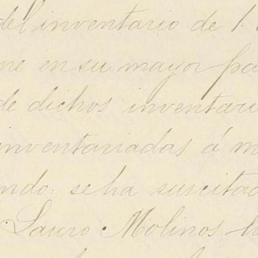 del inventario de 1
en su mayor pa
de dichos inventari
inventariadas á m
ndo: se ha suscitad
Lauro Molinos h